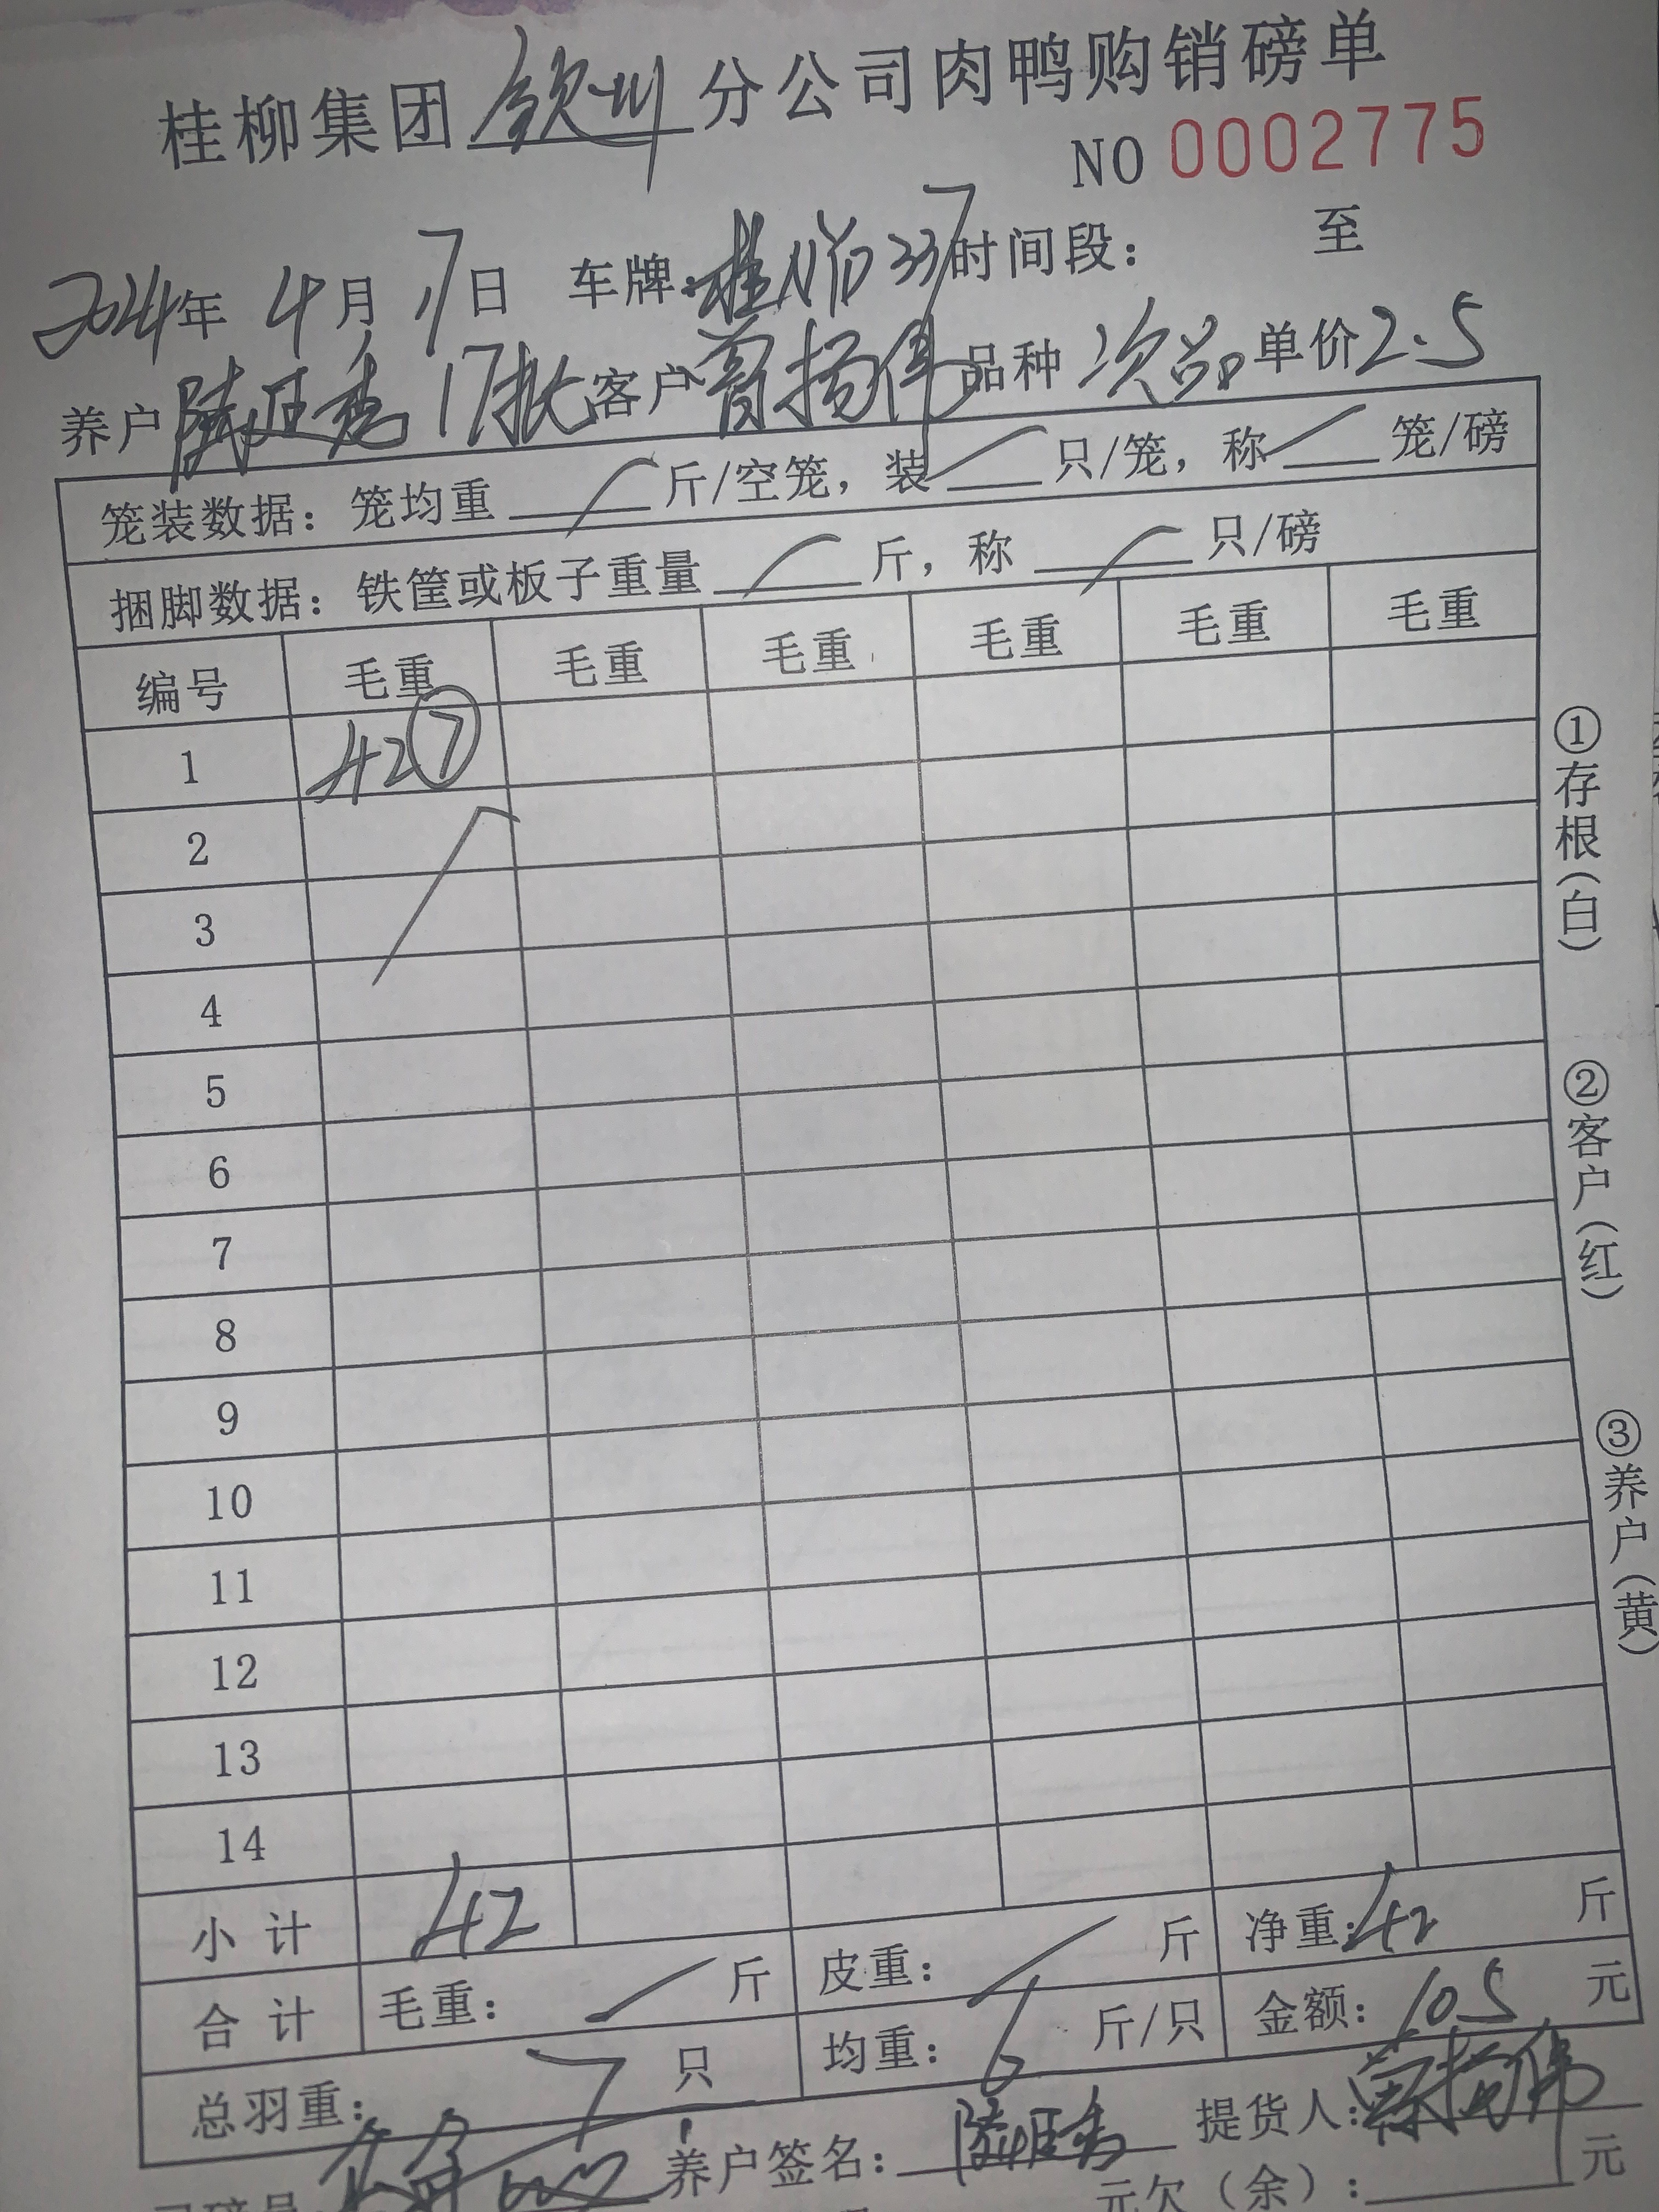 桂柳集团钦州分公司肉鸭购销磅单
NO 0002775
2024年 4月 17日 车牌: 时间段: 至
养户 17批 客户曾扬伟 品种 次品 单价2.5
笼装数据: 笼均重 / 斤/空笼, 装 / 只/笼, 称 / 笼/磅
捆脚数据: 铁筐或板子重量 / 斤, 称 / 只/磅
编号 毛重 毛重 毛重 毛重 毛重 毛重
1 42⑦
2
3
4
5
6
7
8
9
10
11
12
13
14
小计 42
合计 毛重: / 斤 皮重: / 斤 净重: 42 斤
总羽重: 7 只 均重: 6 斤/只 金额: 105 元
养户签名: 提货人: 曾扬伟
元欠(余): 元
①存根(白)
②客户(红)
③养户(黄)